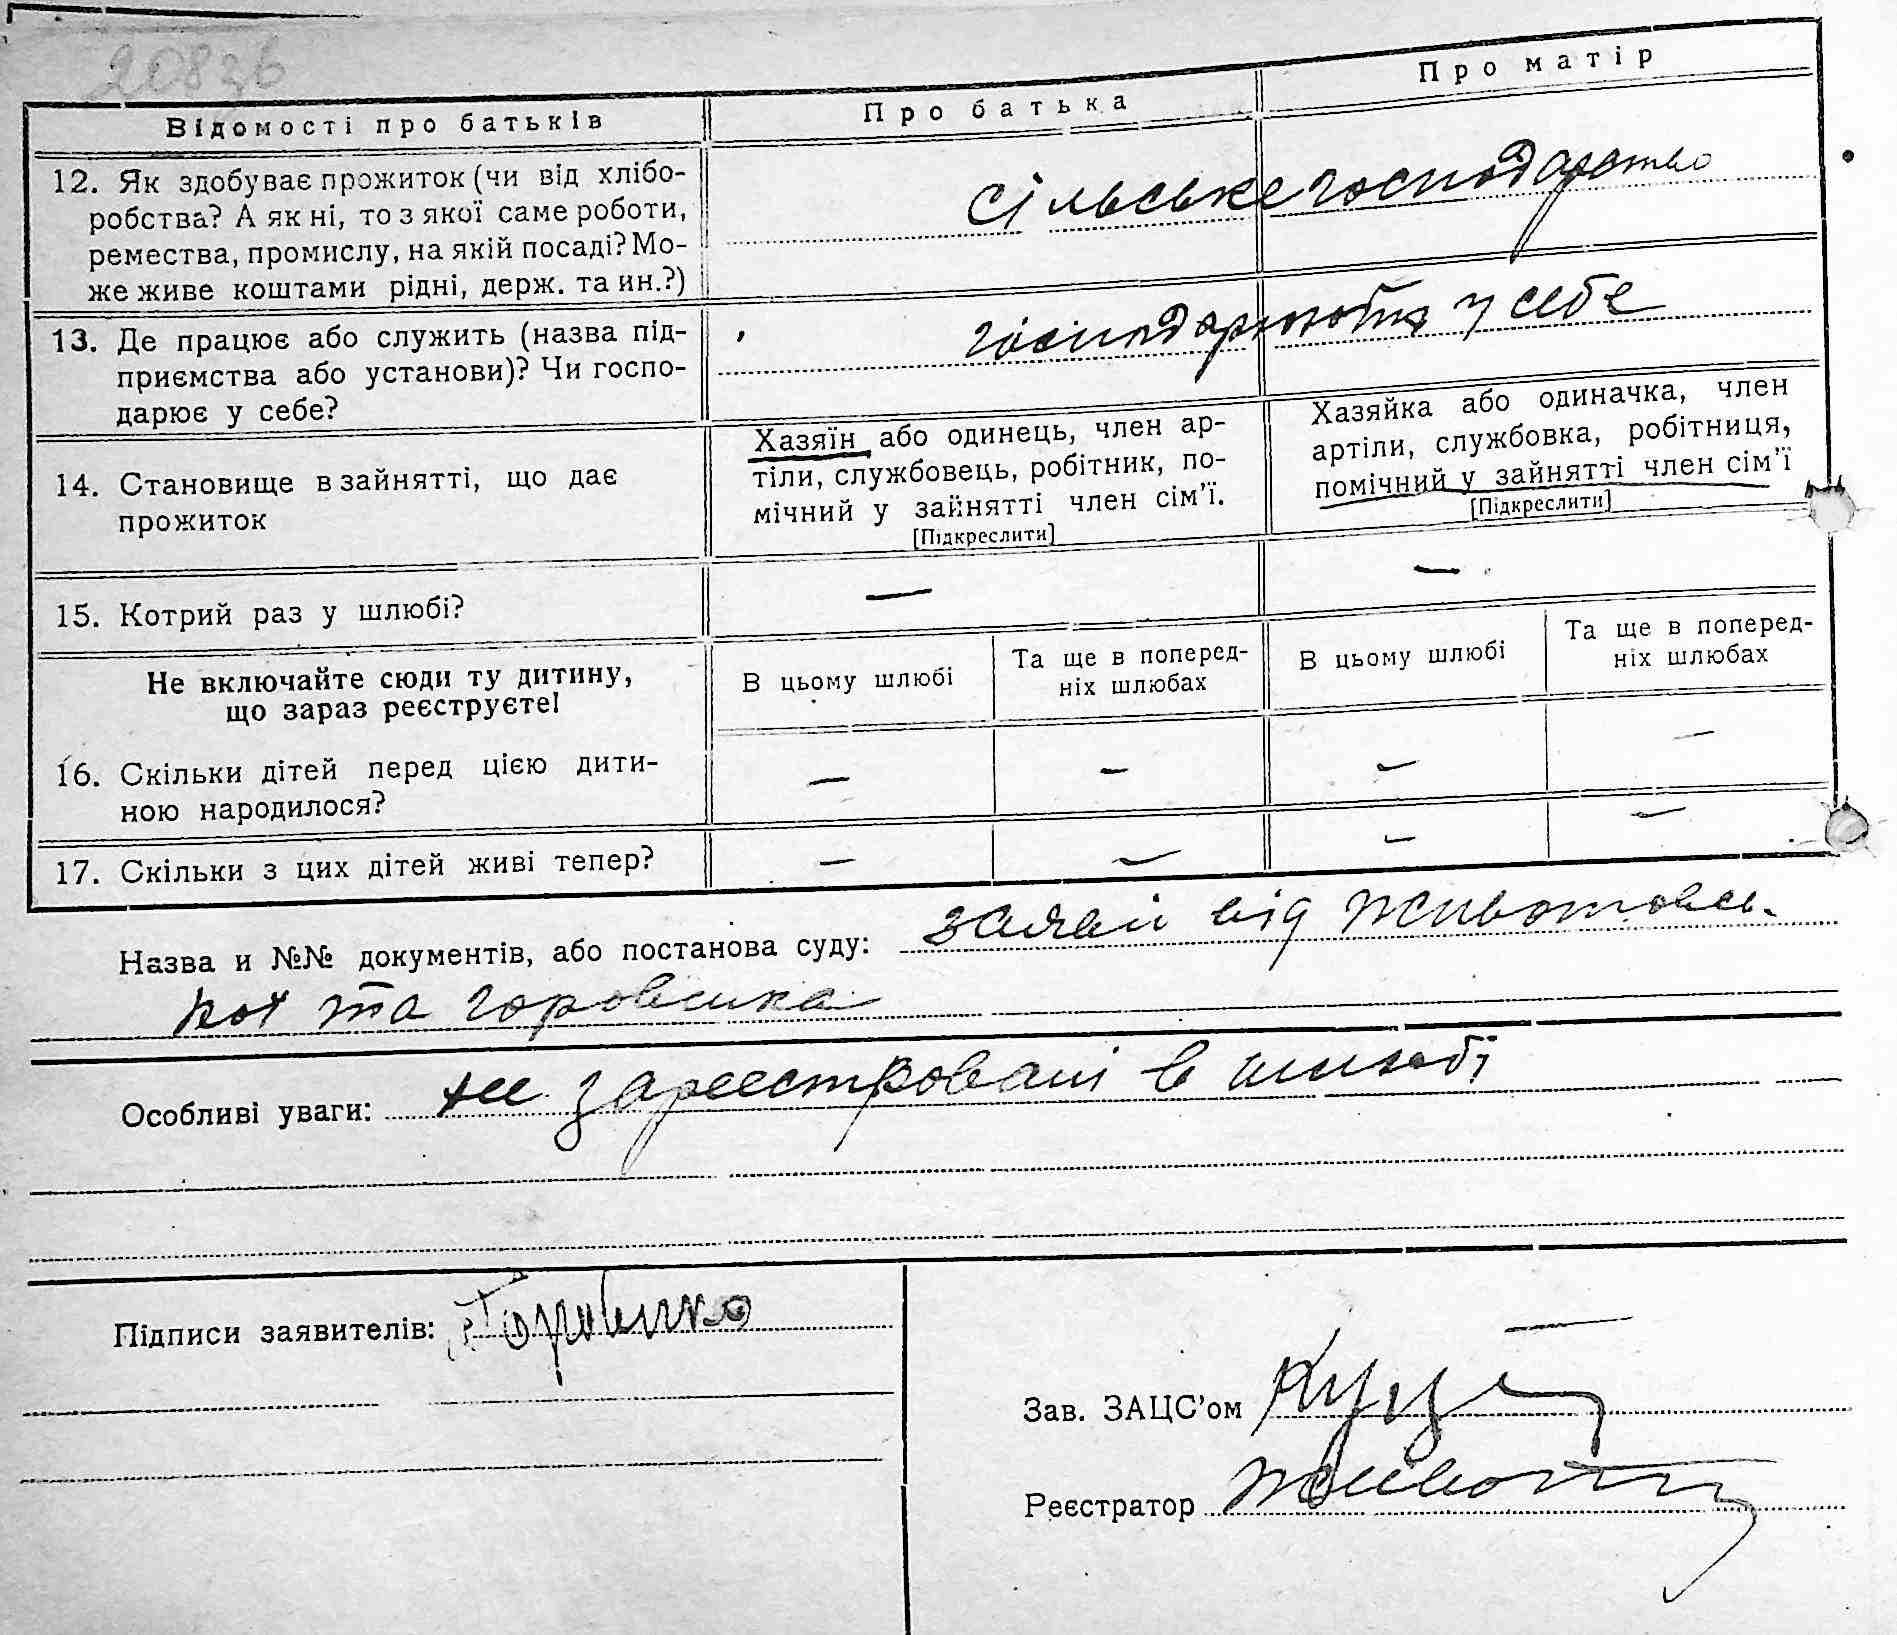 20836
Відомості про батьків
Про батька
Про матір
12. Як здобуває прожиток (чи від хлібо-
робства? А як ні, то з якої саме роботи,
ремества, промислу, на якій посаді? Мо-
же живе коштами рідні, держ. та ин.?)
сільське господарство
13. Де працює або служить (назва під-
приємства або установи)? Чи госпо-
дарює у себе?
господарюють у себе
14. Становище в зайнятті, що дає
прожиток
Хазяїн або одинець, член ар-
тіли, службовець, робітник, по-
мічний у зайнятті член сім'ї.
[Підкреслити]
Хазяйка або одиначка, член
артіли, службовка, робітниця,
помічний у зайнятті член сім'ї
[Підкреслити]
15. Котрий раз у шлюбі?
— —
Не включайте сюди ту дитину,
що зараз реєструєте!
В цьому шлюбі
Та ще в поперед-
ніх шлюбах
В цьому шлюбі
Та ще в поперед-
ніх шлюбах
16. Скільки дітей перед цією дити-
ною народилося?
— — — —
17. Скільки з цих дітей живі тепер?
— — — —
Назва и №№ документів, або постанова суду: заяви від Животовсь-
кої та горовенка
Особливі уваги: не зареєстровані в шлюбі
Підписи заявителів: Горовенко
Зав. ЗАЦС'ом
Реєстратор